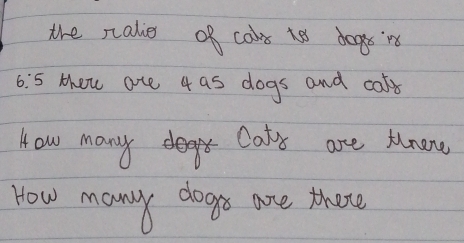 the ratio of cats to dogs is
6:5 there are 495 dogs and cats
How many dogs Cats are there
How many dogs are there